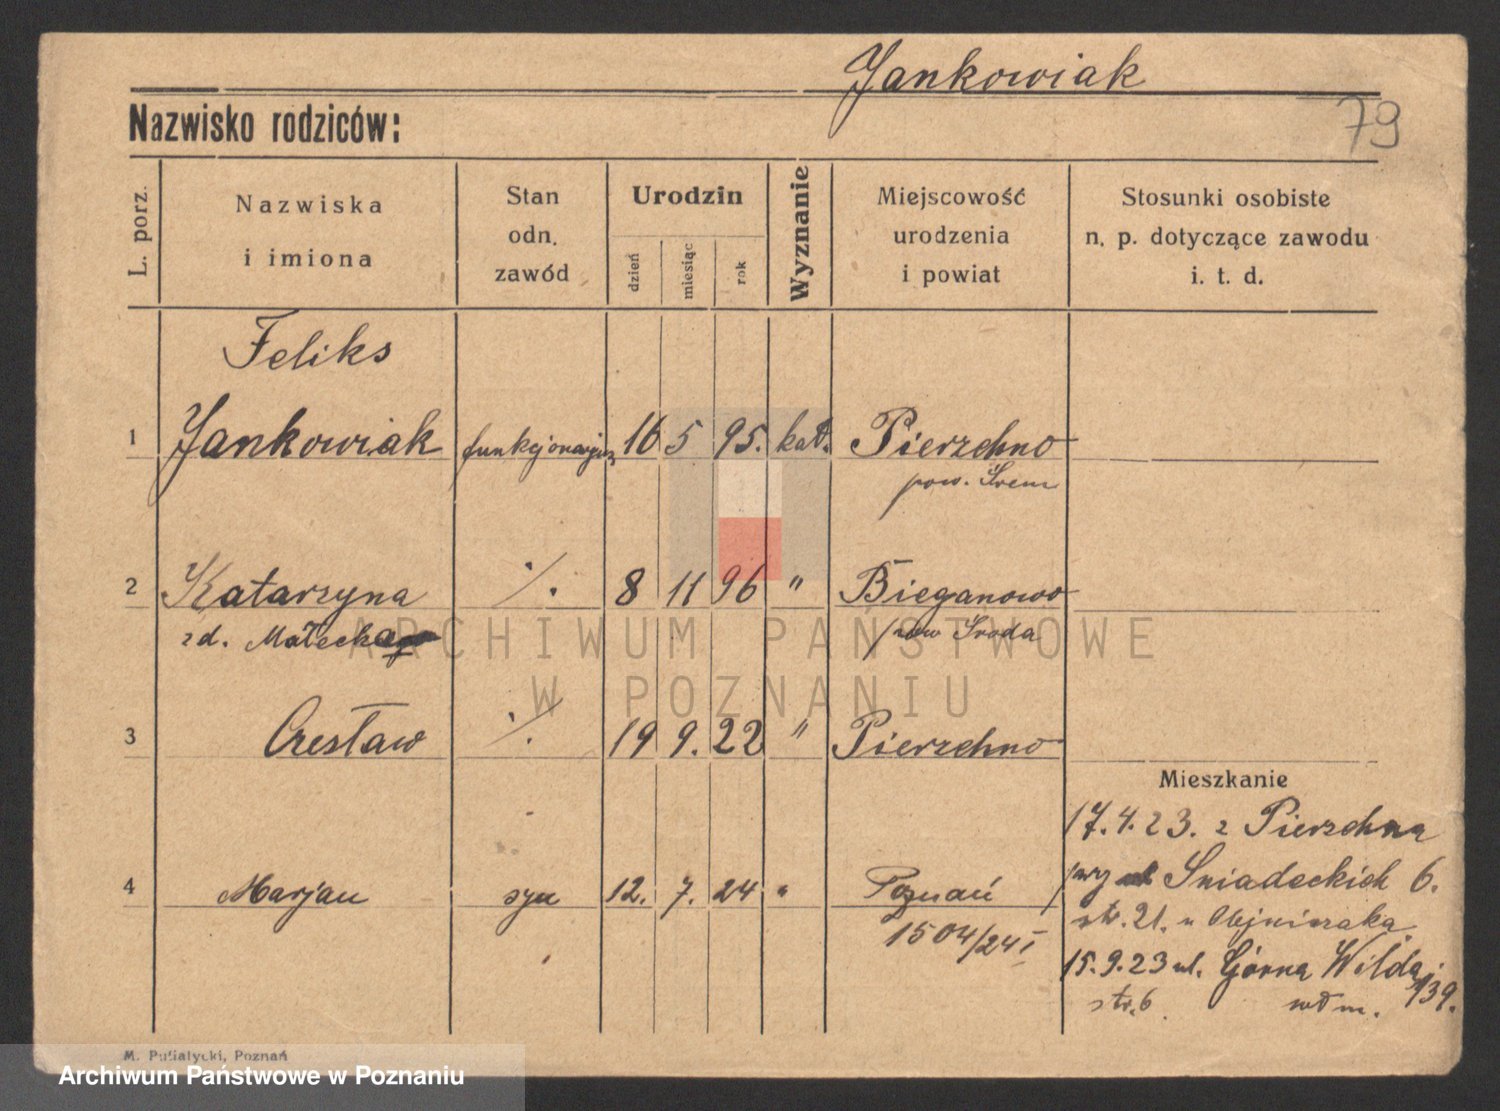 Jankowiak
Nazwisko rodziców:
79
L. porz.
Nazwiska
i imiona
Stan
odn.
zawód
Urodzin
dzień
miesiąc
rok
Wyznanie
Miejscowość
urodzenia
i powiat
Stosunki osobiste
n. p. dotyczące zawodu
i. t. d.
Feliks
1 Jankowiak funkcjonarjusz 16 5 95. kat. Pierzchno
pow. Śrem
2 Katarzyna ·/. 8 11 96 " Bieganowo
zd. Małecka pow Środa
3 Czesław ·/. 19 9. 22 " Pierzchno
Mieszkanie
17.4.23. z Pierzchna
przy ul Sniadeckich 6.
4 Marjan syn 12. 7. 24 " Poznań
str. 21. u Olejniczaka.
1504/24 I
15.9.23 ul. Górna Wilda 139.
str. 6. wł m.
M. Pusiatycki, Poznań
ARCHIWUM PAŃSTWOWE
W POZNANIU
Archiwum Państwowe w Poznaniu